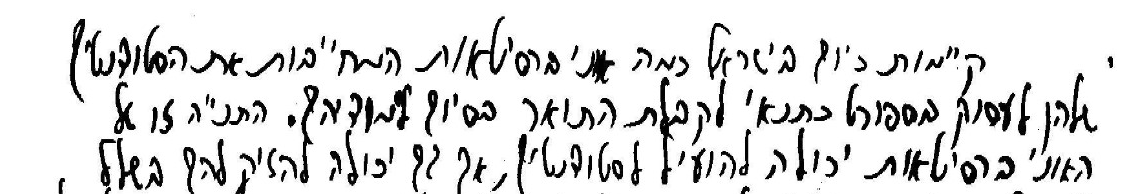 קיימות כיום בישראל כמה אוניברסיטאות המחייבות את הסטודנטים
שלהן לעסוק בספורט כתנאי לקבלת התואר בסיום לימודיהם. התנייה זו של
האוניברסיטאות יכולה להועיל לסטודנטים, אך גם יכולה להזיק להם בשלל